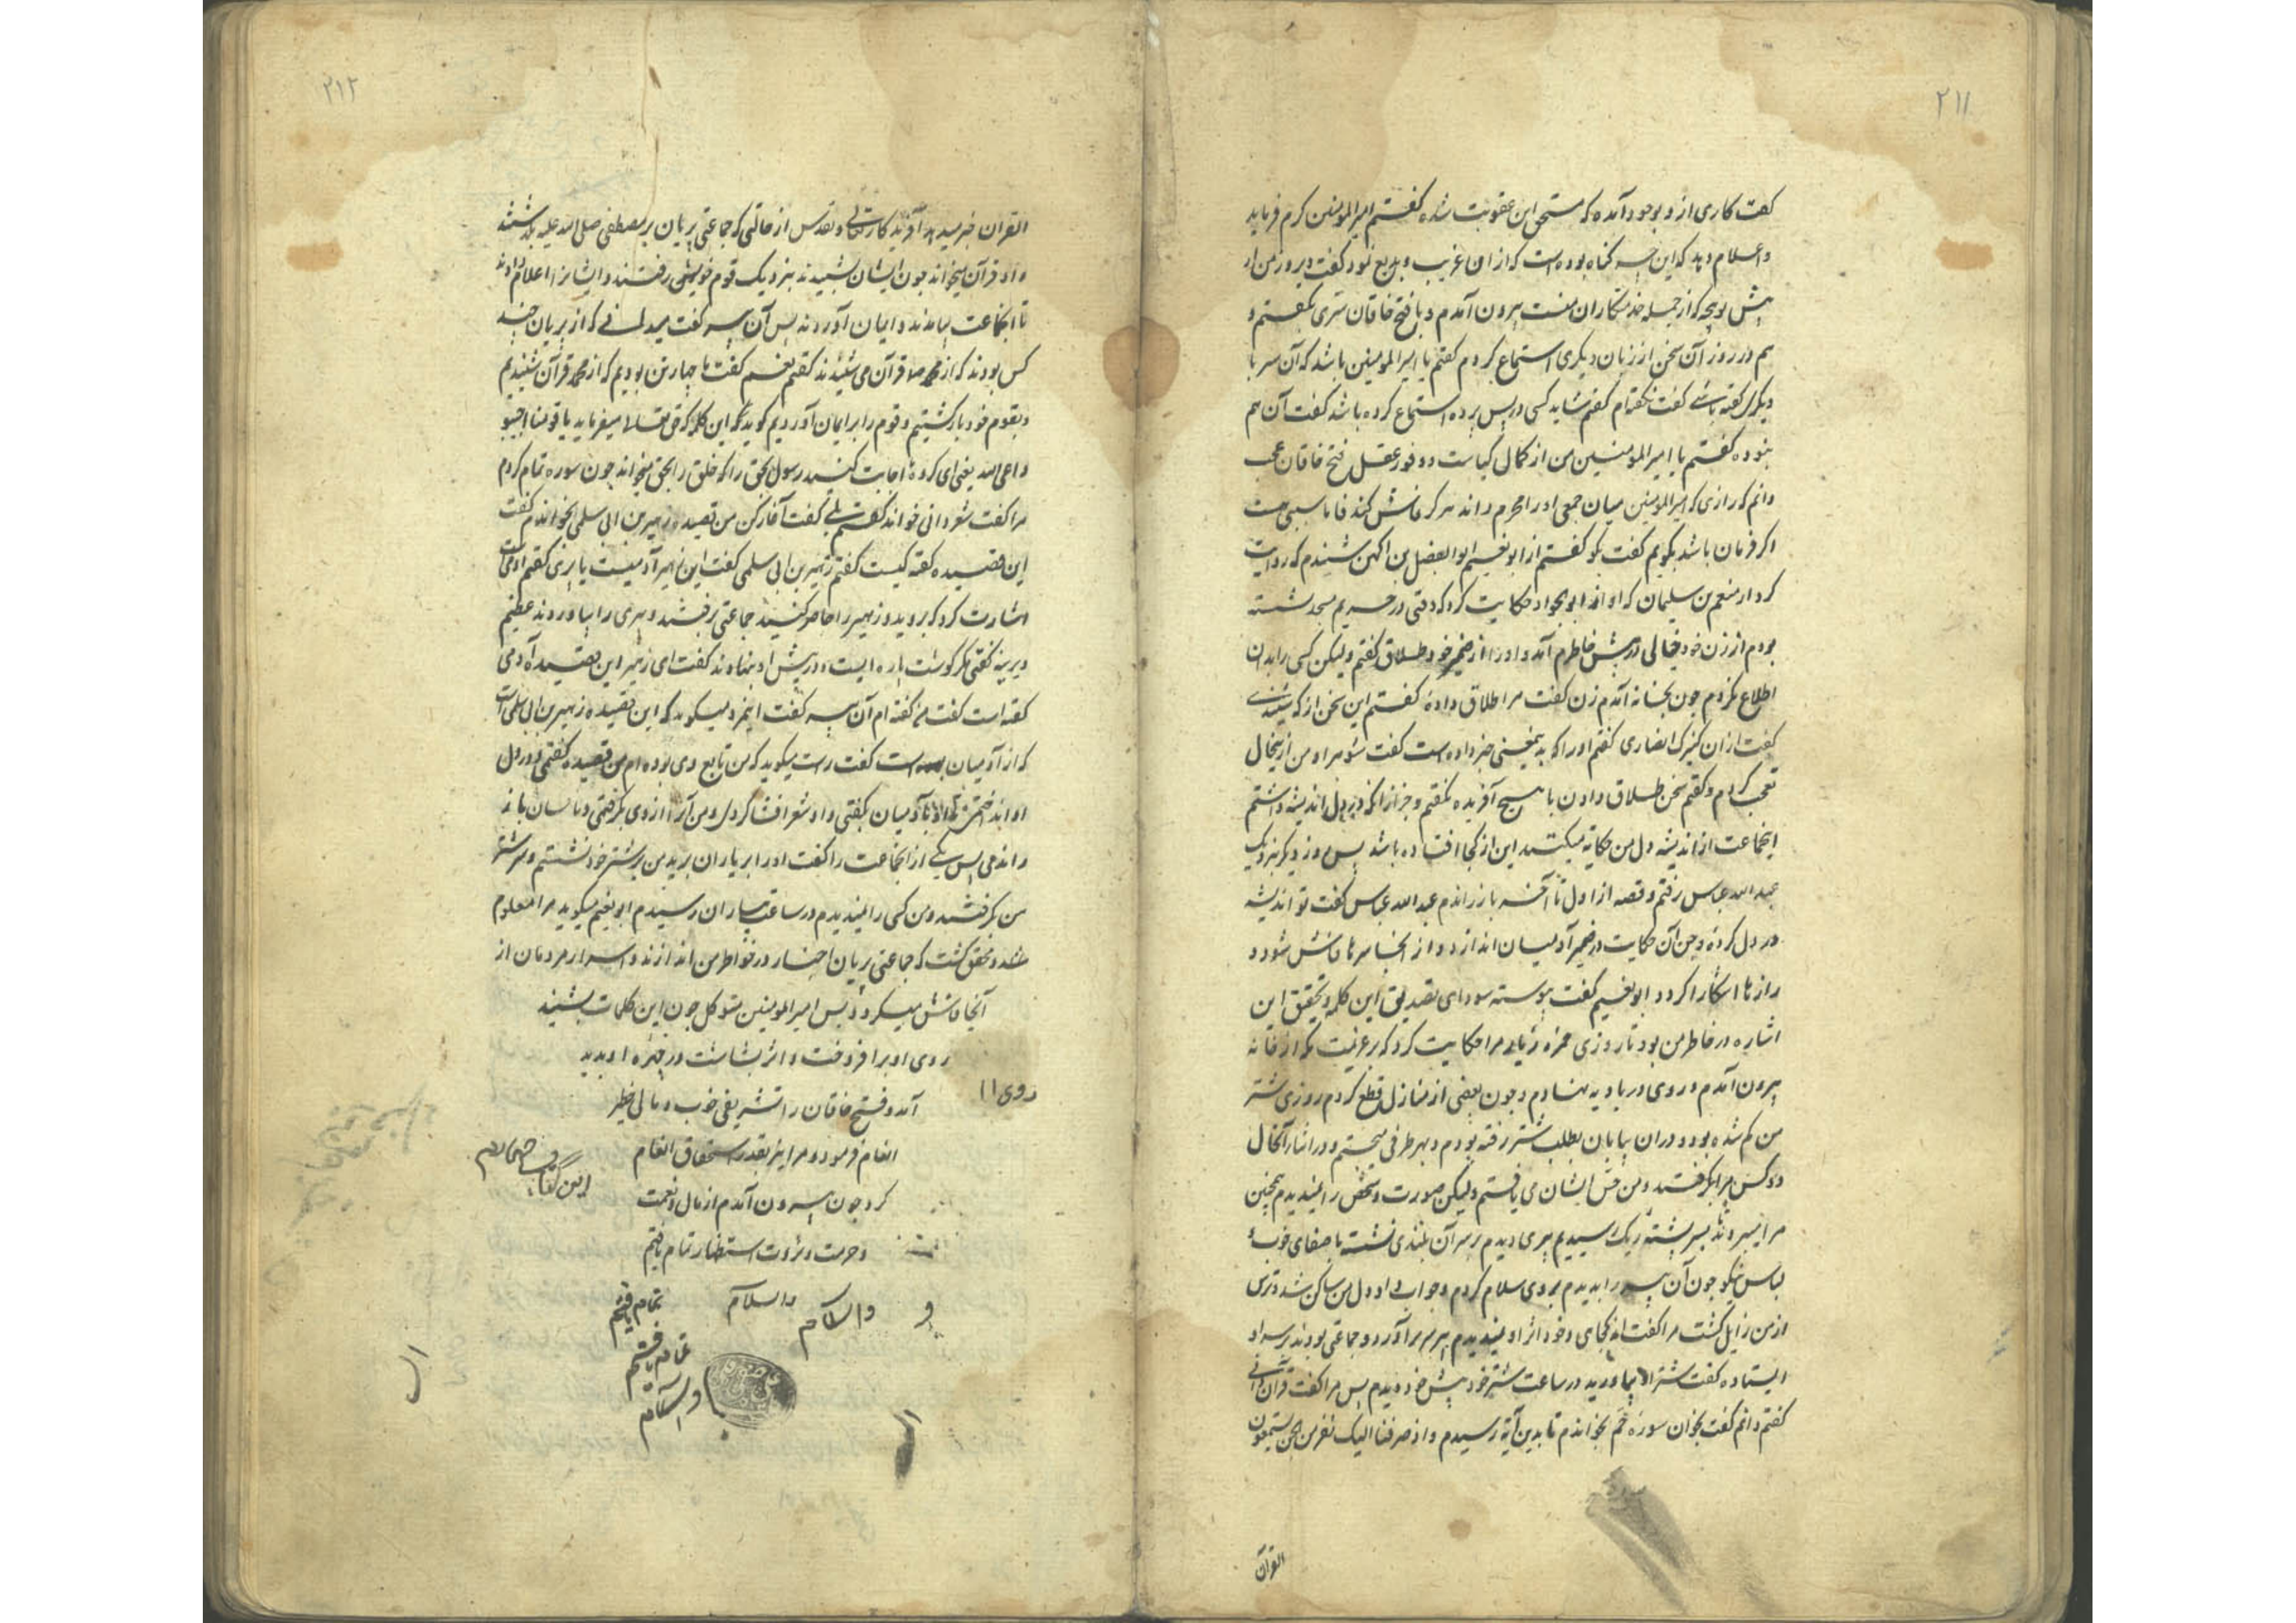 ۲۱۱
گفت کاری ازو بوجود آمده که مستحق این عقوبت شده گفتم امیرالمومنین کرم فرماید
و اعلام دهد که این چه گناه بوده است که از ان غریب و بدیع نمود گفت دیروز من از
پیش بیرون آمدم و با فتح خاقان سری بگفتم و
هم در روز آن سخن از زبان دیگری استماع کردم گفتم یا امیرالمومنین باشد که آن سر با
دیگری گفته باشی گفت نگفته‌ام گفتم شاید کسی در پس پرده استماع کرده باشد گفت آن هم
نبوده گفتم یا امیرالمومنین من از کمال کیاست و وفور عقل فتح خاقان عجب
دانم که رازی که امیرالمومنین میان جمعی اورا محرم داند هرگز فاش کند فاما سببی هست
اگر فرمان باشد بگویم گفت بگو گفتم از ابونعیم ابوالفضل بن شنیدم که روایت
کرد از منعم بن سلیمان که او از ابوالجواد حکایت کرد که وقتی در حریم مسجد نشسته
بودم از زن خود خیالی در پیش خاطرم آمد و اورا از ضمیر خود طلاق گفتم ولیکن کسی را بدان
اطلاع نکردم چون بخانه آمدم زن گفت مرا طلاق دادهٔ گفتم این سخن از که شنیدی
گفت از ان کنیزک انصاری گفتم اورا که بدین معنی خبر داده است گفت شوهر او من ازین حال
تعجب کردم و گفتم سخن طلاق دادن با هیچ آفریده نگفتم و جز از انکه در دل اندیشه داشتم
این جماعت از اندیشه دل من حکایت میکنند این از کجا افتاده باشد پس روز دیگر بنزدیک
عبدالله عباس رفتم و قصه از اول تا آخر باز راندم عبدالله عباس گفت تو اندیشه
در دل کردهٔ و جن آن حکایت در ضمیر آدمیان اندازد و از انجا سرها فاش شود و
رازها آشکارا گردد ابونعیم گفت پیوسته سودای تصدیق این کلمه و تحقیق این
اشاره در خاطر من بود تا روزی حمزه زیات مرا حکایت کرد که بر عزیمت مکه از خانه
بیرون آمدم و روی در بادیه نهادم و چون بعضی از منازل قطع کردم روزی شتر
من گم شده بود و در ان بیابان بطلب شتر رفته بودم و بهر طرفی میجستم و در اثناء آن حال
دو کس مرا بگرفتند و من حس ایشان می یافتم ولیکن صورت و شخص را نمیدیدم همچنین
مرا میبردند تا بسر پشته ریگ رسیدیم پیری دیدم بر سر آن بلندی نشسته با صفای خوب و
لباس نیکو چون آن پیر را بدیدم بروی سلام کردم و جواب داد و دل من ساکن شد و ترس
از من زایل گشت مرا گفت از کجای و خود اثر او نمیدیدم سر برآورد و جماعتی بودند بر سر او
ایستاده گفت شتر اورا بیاورید در ساعت شتر خود پیش خود دیدم پس مرا گفت قرآن دانی
گفتم دانم گفت بخوان سوره حم بخواندم تا بدین آیه رسیدم و اذ صرفنا الیک نفرا من الجن یستمعون
القرآن
۲۱۲
القران خبر میدهد آفریدگار تعالی و تقدس از حالتی که جماعتی پریان بر مصطفی صلی الله علیه بگذشتند
و او قرآن میخواند چون ایشان بشنیدند بنزدیک قوم خویش رفتند و ایشانرا اعلام دادند
تا آن جماعت بیامدند و ایمان آوردند پس آن پیر گفت میدانی که از پریان چند
کس بودند که از محمد صلعم قرآن می شنیدند گفتم نعم گفت ما چهار تن بودیم که از محمد قرآن شنیدیم
و بقوم خود بازگشتیم و قوم را بر ایمان آوردیم این کلمه که حق تعالی میفرماید یا قومنا اجیبوا
داعی الله یعنی ای گروه اجابت کنید رسول بحق را که خلق را بحق میخواند چون سوره تمام کردم
مرا گفت شعر دانی خواند گفتم بلی گفت آغاز کن من قصیده زهیر بن ابی سلمی بخواندم گفت
این قصیده گفته کیست گفتم زهیر بن ابی سلمی گفت این زهیر آدمیست یا پری گفتم آدمی
اشارت کرد که بروید و زهیر را حاضر کنید جماعتی رفتند و پیری را بیاوردند عظیم
دیرینه گفتی مگر گوشت پاره ایست و در پیش او بنهادند گفت ای زهیر این قصیده آدمی
گفته است گفت من گفته ام آن پیر گفت این مرد میگوید که این قصیده زهیر بن ابی سلمی است
که از آدمیان است گفت راست میگوید که من تابع وی بوده ام من قصیده گفتمی و در دل
او انداختمی تا او با آدمیان بگفتی و او شعر افشا کردی و من آنرا از وی بگرفتمی
راندمی پس یکی از ان جماعت را گفت اورا بر یاران برید من بر شتر خود نشستم و سر شتر
من بگرفتند و من کسی را نمیدیدم در ساعت بیاران رسیدم ابونعیم میگوید مرا معلوم
شد و محقق گشت که جماعتی پریان اخبار در خواطر من اندازند و اسرار مردمان از
آنجا فاش میگردد پس امیرالمومنین متوکل چون این کلمات بشنید
روی او برافروخت و اثر بشاشت در چهره او پدید
آمد و فتح خاقان را تشریفی خوب و مالی خطیر
انعام فرمود و مرا نیز بقدر استحقاق انعام
کرد چون بیرون آمدم از مال و نعمت
و حرمت و ثروت استظهار تمام یافتم
والسلام
والسلام
تمام یافتم
تمام یافتم
والسلام
روی ۱۱
این کتاب